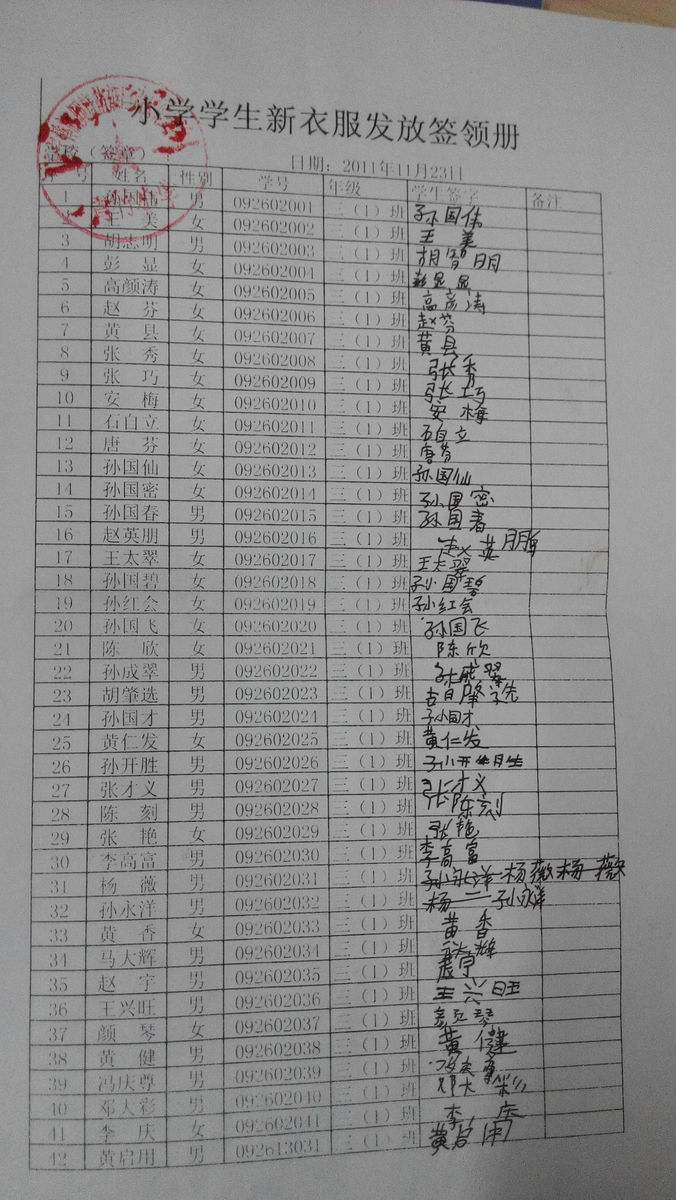 小学学生新衣服发放签领册
学校（签章） 日期：2011年11月23日
序号 姓名 性别 学号 年级 学生签字 备注
1 孙国伟 男 092602001 三（1）班 孙国伟
2 王美 女 092602002 三（1）班 王美
3 胡志明 男 092602003 三（1）班 胡智明
4 彭显 女 092602004 三（1）班 彭显显
5 高颜涛 女 092602005 三（1）班 高彦涛
6 赵芬 女 092602006 三（1）班 赵芬
7 黄县 女 092602007 三（1）班 黄县
8 张秀 女 092602008 三（1）班 张秀
9 张巧 女 092602009 三（1）班 张巧
10 安梅 女 092602010 三（1）班 安梅
11 石自立 女 092602011 三（1）班 石自立
12 唐芬 女 092602012 三（1）班 唐芬
13 孙国仙 女 092602013 三（1）班 孙国仙
14 孙国密 女 092602014 三（1）班 孙国密
15 孙国春 男 092602015 三（1）班 孙国春
16 赵英朋 男 092602016 三（1）班 赵英朋
17 王太翠 女 092602017 三（1）班 王太翠
18 孙国碧 女 092602018 三（1）班 孙国碧
19 孙红会 女 092602019 三（1）班 孙红会
20 孙国飞 女 092602020 三（1）班 孙国飞
21 陈欣 女 092602021 三（1）班 陈欣
22 孙成翠 男 092602022 三（1）班 孙成翠
23 胡肇选 男 092602023 三（1）班 胡肇选
24 孙国才 男 092602024 三（1）班 孙国才
25 黄仁发 女 092602025 三（1）班 黄仁发
26 孙开胜 男 092602026 三（1）班 孙开胜
27 张才义 男 092602027 三（1）班 张才义
28 陈刻 男 092602028 三（1）班 张陈刻
29 张艳 女 092602029 三（1）班 张艳
30 李高富 男 092602030 三（1）班 李高富
31 杨薇 男 092602031 三（1）班 孙永洋 杨薇 杨薇
32 孙永洋 男 092602032 三（1）班 杨 孙永洋
33 黄香 女 092602033 三（1）班 黄香
34 马大辉 男 092602034 三（1）班
35 赵宇 男 092602035 三（1）班
36 王兴旺 男 092602036 三（1）班 王兴旺
37 颜琴 女 092602037 三（1）班 琴
38 黄健 男 092602038 三（1）班 黄健
39 冯庆尊 男 092602039 三（1）班 冯庆尊
40 邓大彩 男 092602040 三（1）班 邓大彩
41 李庆 女 092602041 三（1）班 李庆
42 黄启用 男 092613031 三（1）班 黄启用